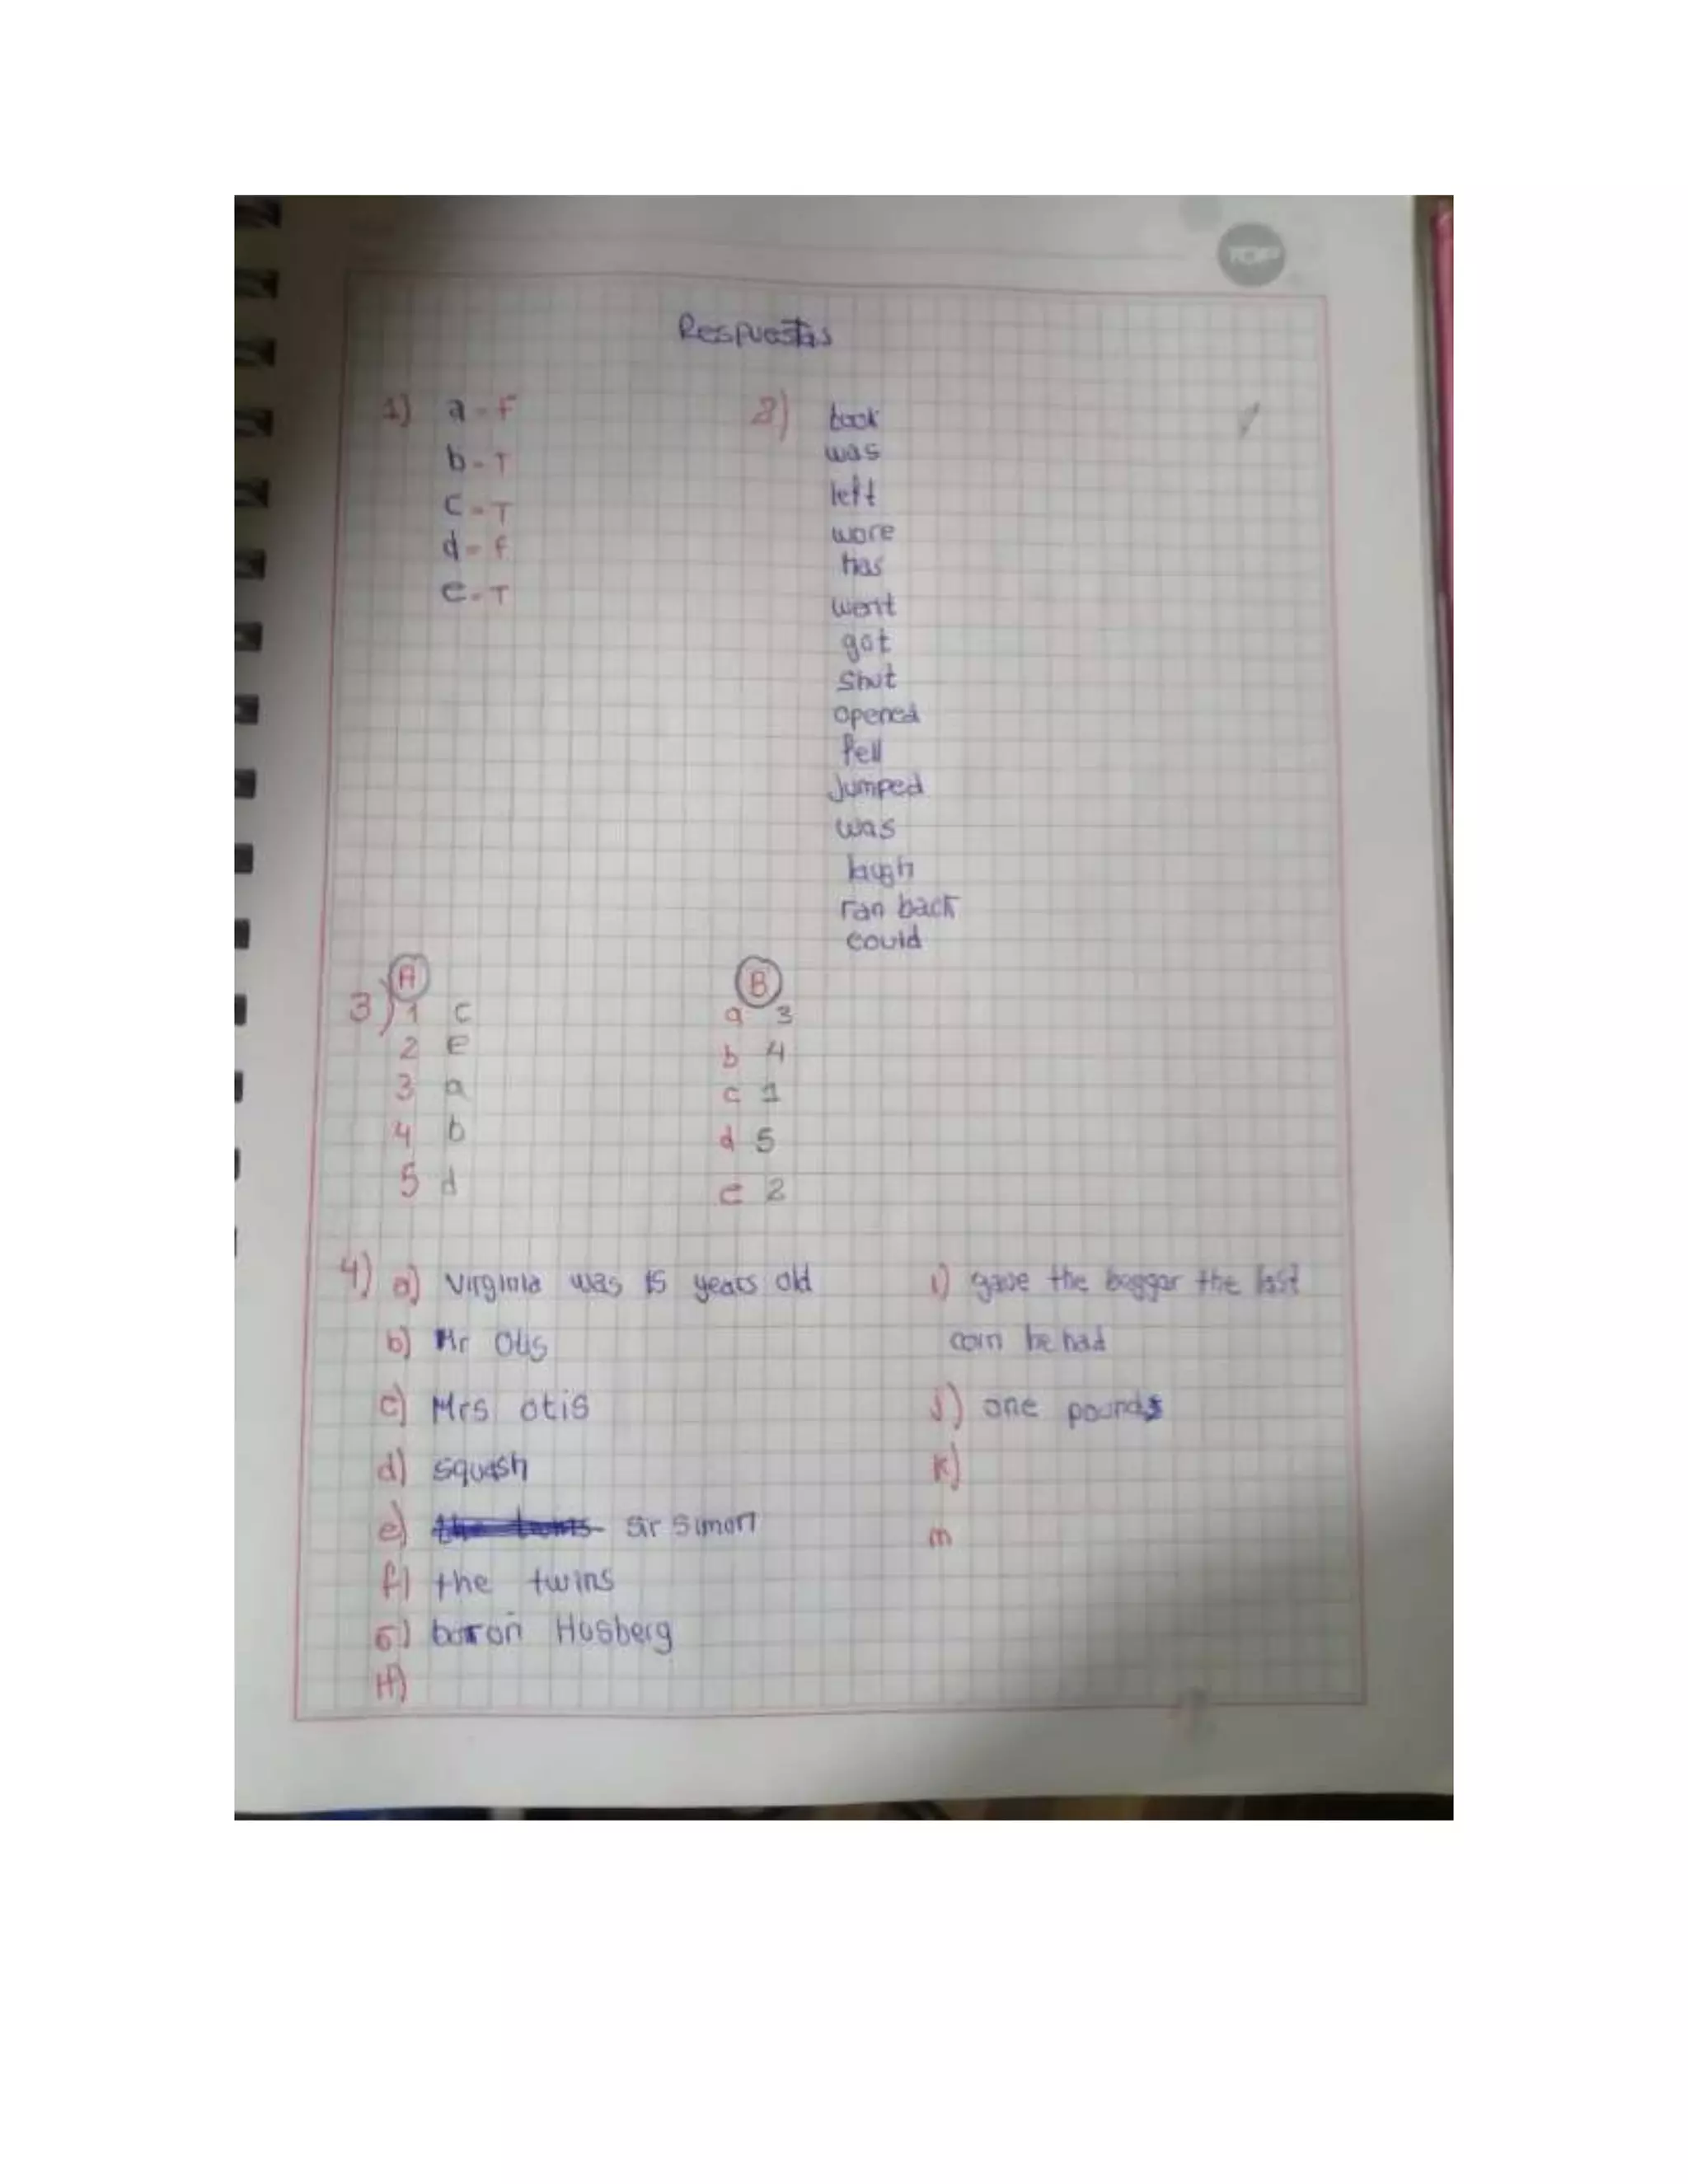 TOP
Respuestas
1) a - F
b - T
c - T
d - f
e - T
2) took
was
left
wore
has
went
got
shut
opened
fell
Jumped
was
laugh
ran back
could
3) A
1 c
2 e
3 a
4 b
5 d
B
a 3
b 4
c 1
d 5
e 2
4) a) Virginia was 15 years old
b) Mr Otis
c) Mrs otis
d) squash
e) sir simon
f) the twins
G) baron Husberg
H)
i) gave the beggar the last
coin he had
J) one pounds
K)
m